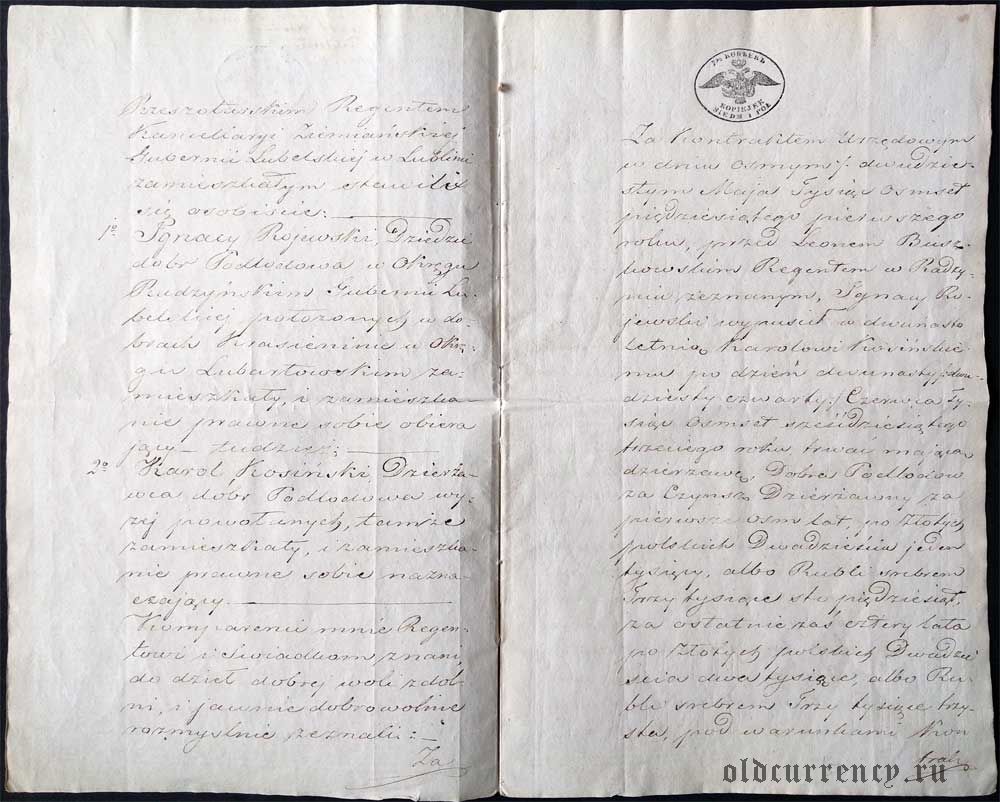 Brzezołuskim Regentem
Kancellaryi Ziemiańskiéj
Gubernii Lubelskiéj w Lublinie
zamieszkałym stawili
się osobiście:
1o Ignacy Rojewski, Dziedzic
dobr Podlodowa w Okręgu
Radzyńskim Gubernii Lu-
belskiéj położonych w do-
brach Krasieninie w Okrę-
gu Lubartowskim za-
mieszkały, i zamieszka-
nie prawne sobie obiera
jący – tudzież:
2o Karol Kosiński, Dzierża
wca dobr Podlodowa wy-
żéj powołanych, tamże
zamieszkały, i zamieszka-
nie prawne sobie nazna
czający.
Komparenci mnie Regen-
towi i Świadkom znani,
do dzieł dobrej woli zdol-
ni, i jawnie dobrowolnie
rozmyslnie zeznali: –
Za
7½ КОПѢЕКЪ
KOPIEJEK
SIEDM I PÓŁ
Za Kontraktem Urzędowym
w dniu osmym /: dwudzie-
stym Maja Tysiąc osmset
piędziesiątego pierwszego
roku, przed Leonem Busz
kowskim Regentem w Radzy-
niu zeznanym, Ignacy Ro-
jewski wypuścił w dwunasto
letnią Karolowi Kosińskie
mu po dzień dwunasty /: dwu-
dziesty czwarty:/ Czerwca Ty-
siąc osmset sześćdziesiątego
trzeciego roku trwać mającą
dzierżawę, Dobra Podlodów
za Czynsz Dzierżawny za
pierwsze osm lat, po złotych
polskich Dwadzieścia jeden
tysięcy, albo Rubli srebrem
Trzy tysiące sto piędziesiąt,
za ostatnie zaś cztery lata
po złotych polskich Dwadzie
ścia dwa tysiące, albo Ru-
bli srebrem Trzy tysiące trzy-
sta, pod warunkami Kon
trak
oldcurrency.ru